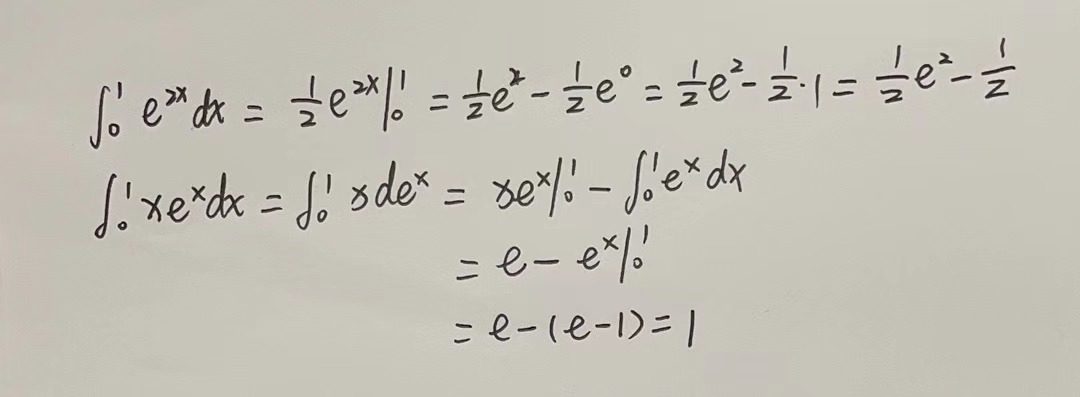 ∫₀¹ e²ˣ dx = ½e²ˣ|₀¹ = ½e² − ½e⁰ = ½e² − ½·1 = ½e² − ½
∫₀¹ xeˣdx = ∫₀¹ xdeˣ = xeˣ|₀¹ − ∫₀¹ eˣdx
= e − eˣ|₀¹
= e − (e − 1) = 1